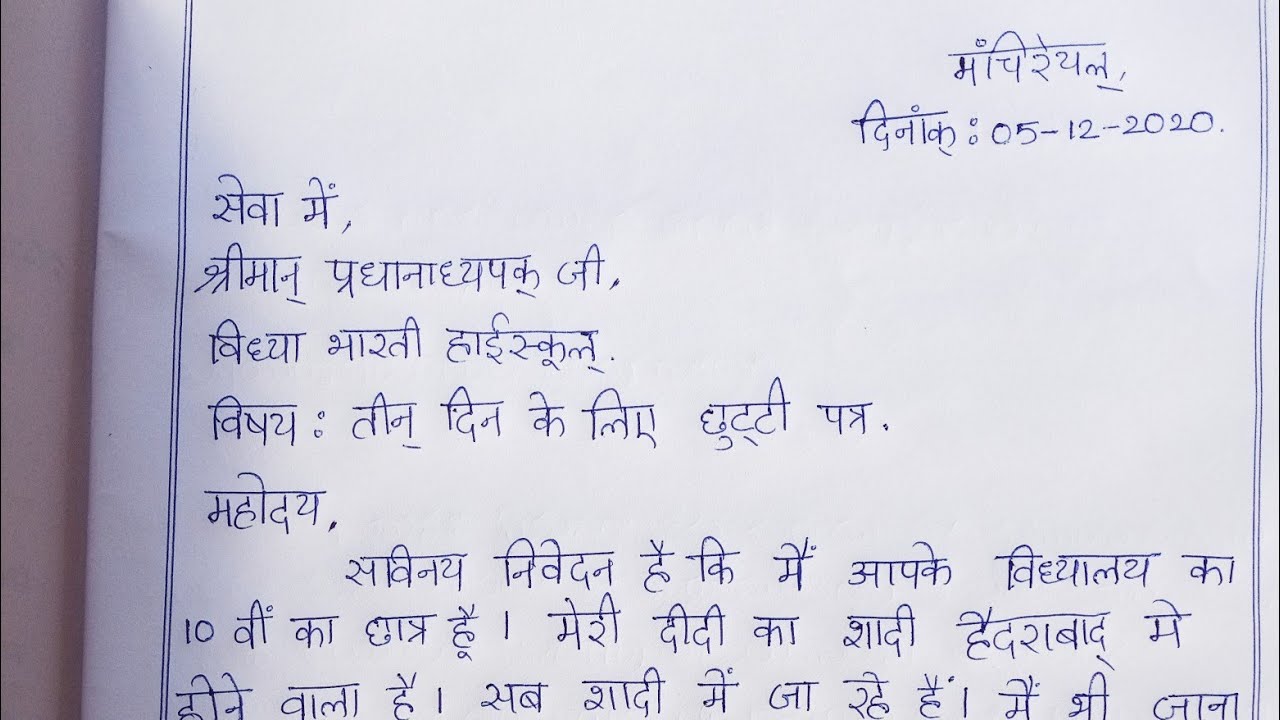 मंचिरेयल्,
दिनांक् : 05-12-2020.
सेवा में,
श्रीमान् प्रधानाध्यपक् जी,
विध्या भारती हाईस्कूल्.
विषय : तीन् दिन के लिए छुट्टी पत्र.
महोदय,
सविनय निवेदन है कि मैं आपके विध्यालय का
10 वीं का छात्र हूँ। मेरी दीदी का शादी हैदराबाद् मे
होने वाला है। सब शादी में जा रहे हैं। मैं भी जाना